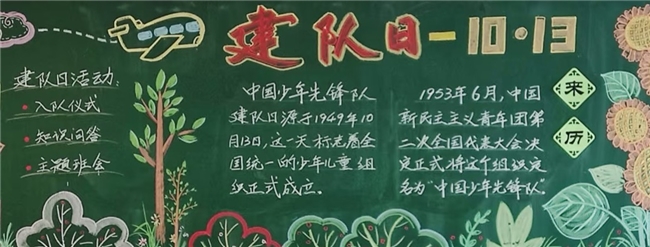 建队日-10·13
建队日活动:
·入队仪式
·知识问答
·主题班会
中国少年先锋队
建队日源于1949年10
月13日,这一天标志着全
国统一的少年儿童组
织正式成立。
1953年6月,中国
新民主主义青年团第
二次全国代表大会决
定正式将这个组织定
名为"中国少年先锋队"
来
历